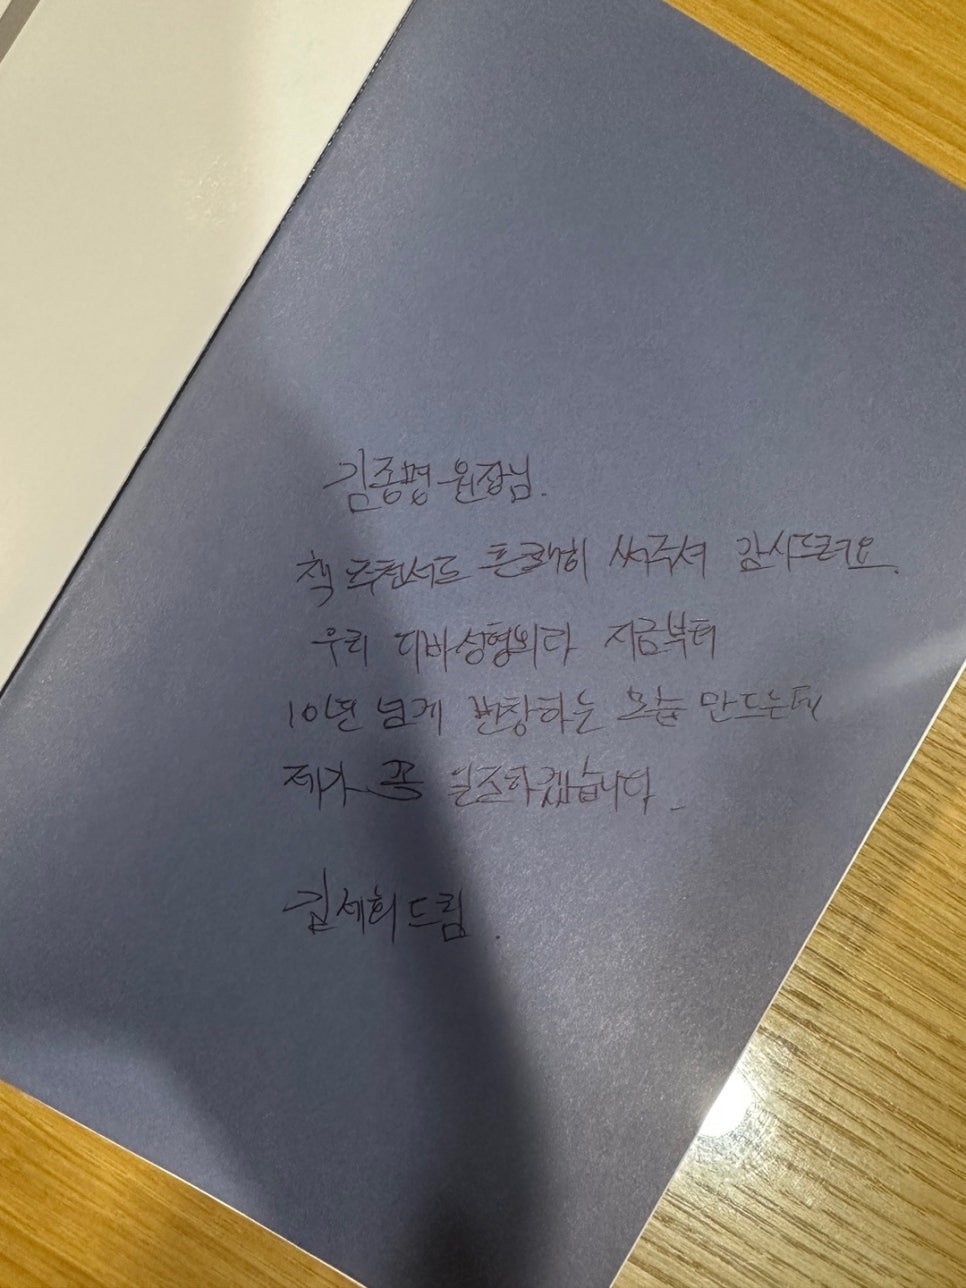 김종명 원장님.
책 추천서도 흔쾌히 써주셔 감사드려요.
우리 디바성형외과 지금부터
10년 넘게 번창하는 모습 만드는데
제가 꼭 일조하겠습니다.
김세희 드림.